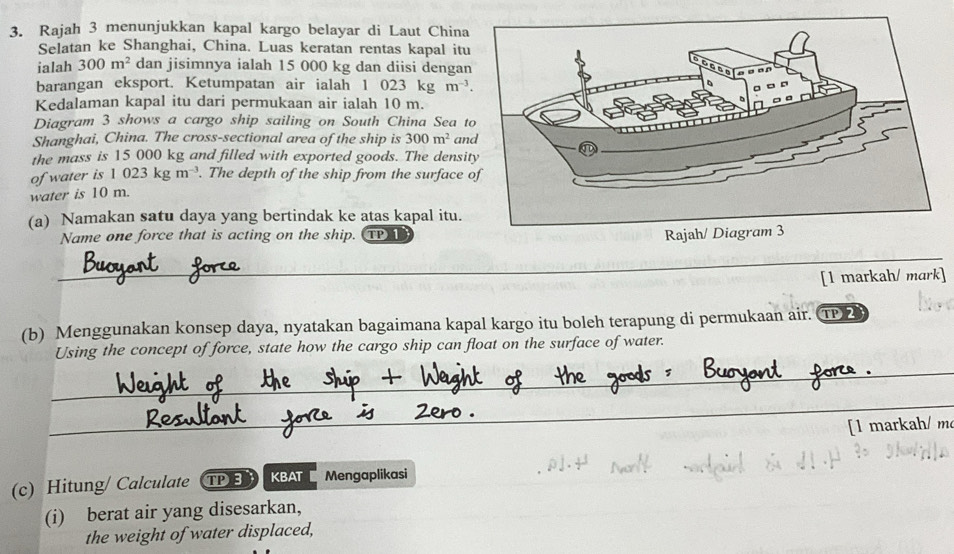 3. Rajah 3 menunjukkan kapal kargo belayar di Laut China
Selatan ke Shanghai, China. Luas keratan rentas kapal itu
ialah 300 m² dan jisimnya ialah 15 000 kg dan diisi dengan
barangan eksport. Ketumpatan air ialah 1 023 kg m⁻³.
Kedalaman kapal itu dari permukaan air ialah 10 m.
Diagram 3 shows a cargo ship sailing on South China Sea to
Shanghai, China. The cross-sectional area of the ship is 300 m² and
the mass is 15 000 kg and filled with exported goods. The density
of water is 1 023 kg m⁻³. The depth of the ship from the surface of
water is 10 m.
(a) Namakan satu daya yang bertindak ke atas kapal itu.
Name one force that is acting on the ship. TP 1
Rajah/ Diagram 3
Buoyant force
[1 markah/ mark]
(b) Menggunakan konsep daya, nyatakan bagaimana kapal kargo itu boleh terapung di permukaan air. TP 2
Using the concept of force, state how the cargo ship can float on the surface of water.
Weight of the ship + Weight of the goods = Buoyant force.
Resultant force is zero.
[1 markah/ ma
(c) Hitung/ Calculate TP 3 KBAT Mengaplikasi
(i) berat air yang disesarkan,
the weight of water displaced,